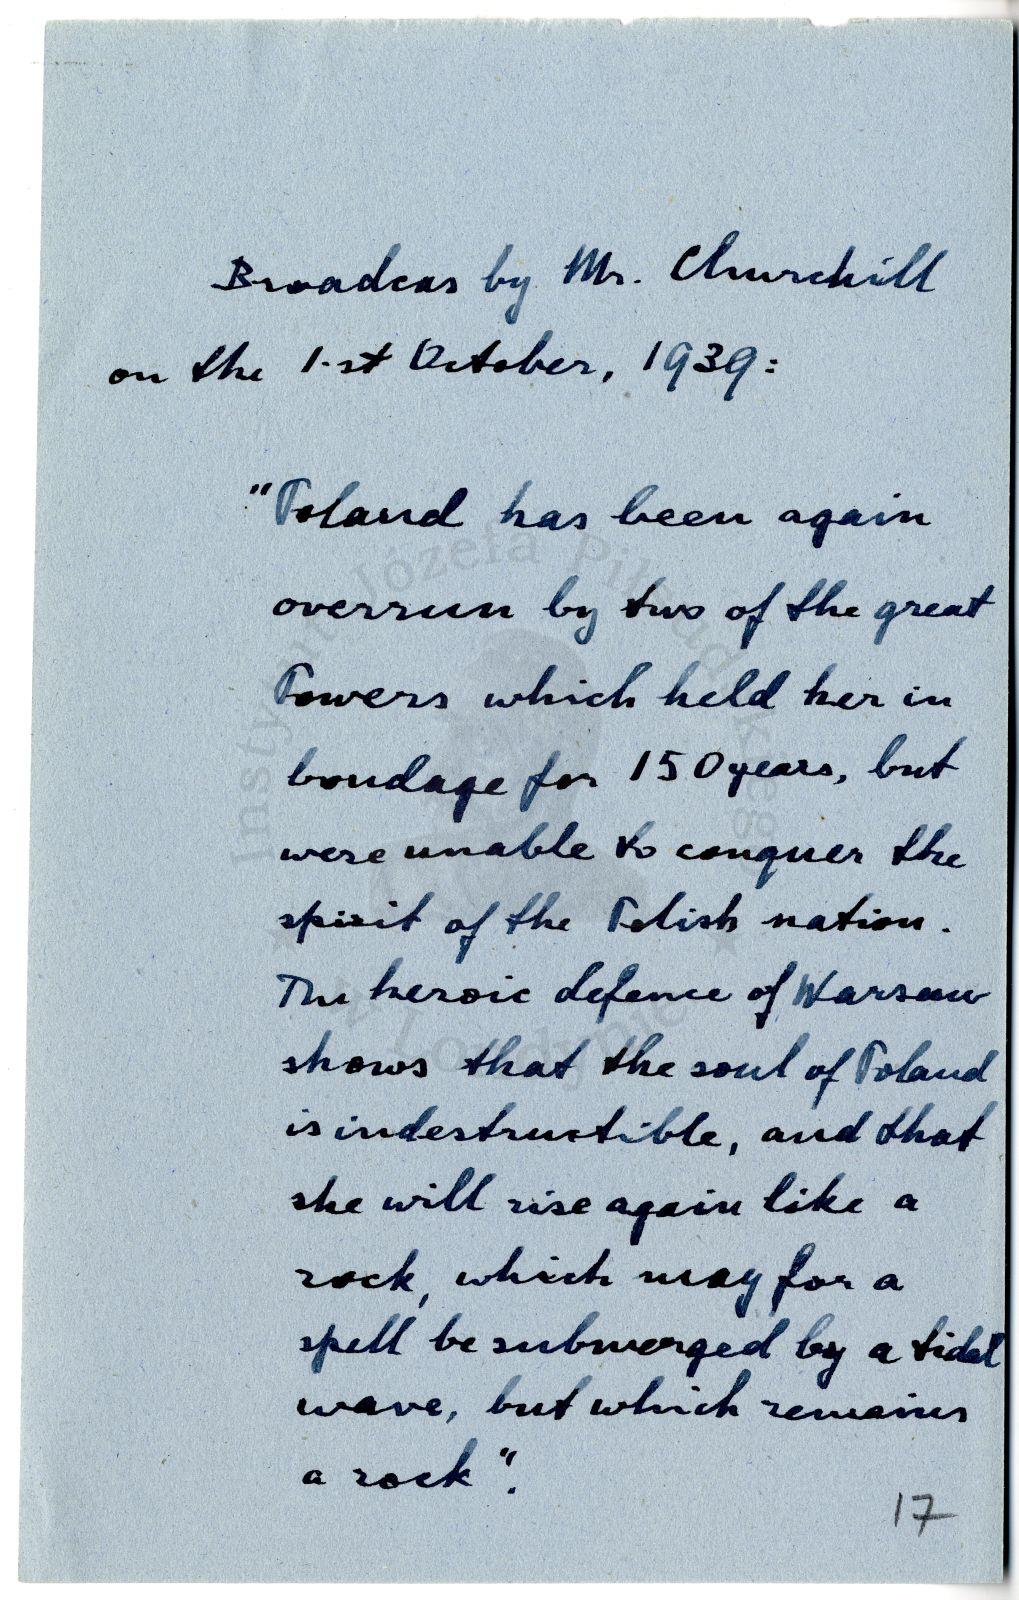 Broadcas by Mr. Churchill
on the 1-st October, 1939:
"Poland has been again
overrun by two of the great
Powers which held her in
bondage for 150 years, but
were unable to conquer the
spirit of the Polish nation.
The heroic defence of Warsaw
shows that the soul of Poland
is indestructible, and that
she will rise again like a
rock, which may for a
spell be submerged by a tidal
wave, but which remains
a rock".
17
Instytut Józefa Piłsudskiego
w Londynie